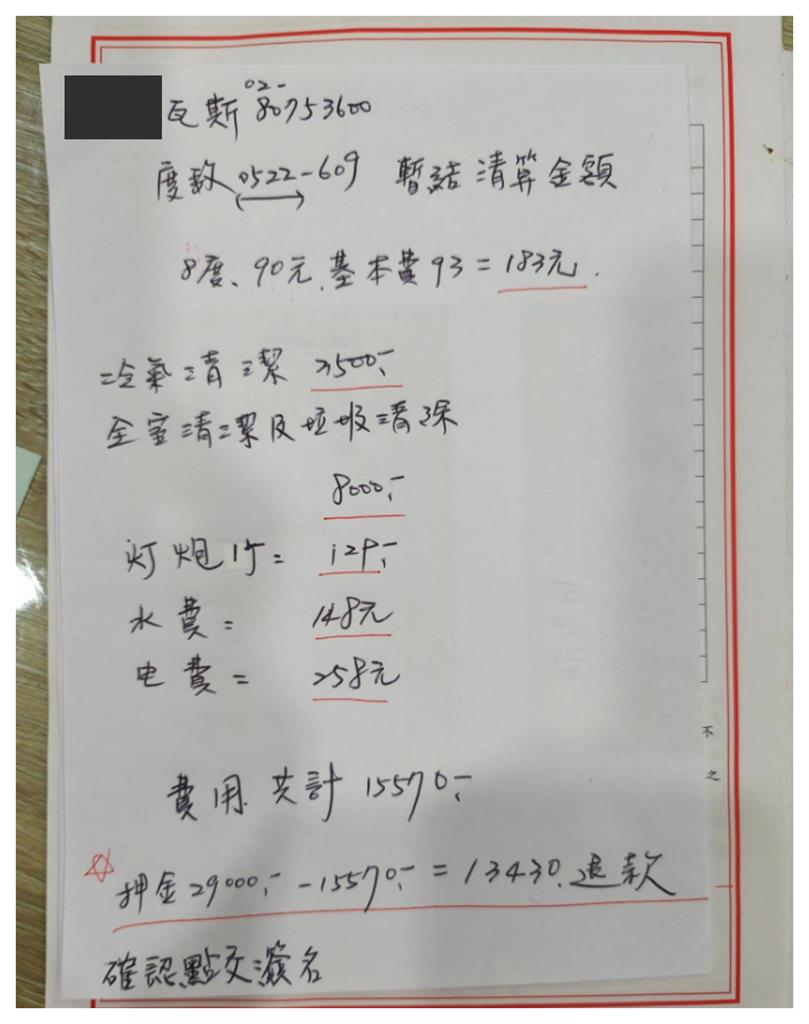 瓦斯 02-80753600
度数 0522-609 暫結清算金額
8度、90元.基本費93=183元.
冷氣清潔 2500,-
全室清潔及垃圾清除
8000,-
灯炮1个= 129,-
水費= 148元
电費= 258元
費用共計 15570,-
押金29000,- -15570,- =13430.退款
確認點交簽名
不
之